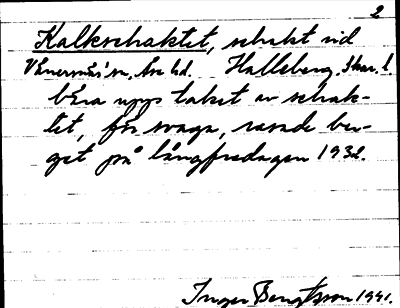 2
Kalkschaktet, schakt vid
Hallsberg, Skar. l.
bära upp taket av schak-
tet, för svaga, rasade ber-
get på långfredagen 1932.
Inger Bengtsson 1991.